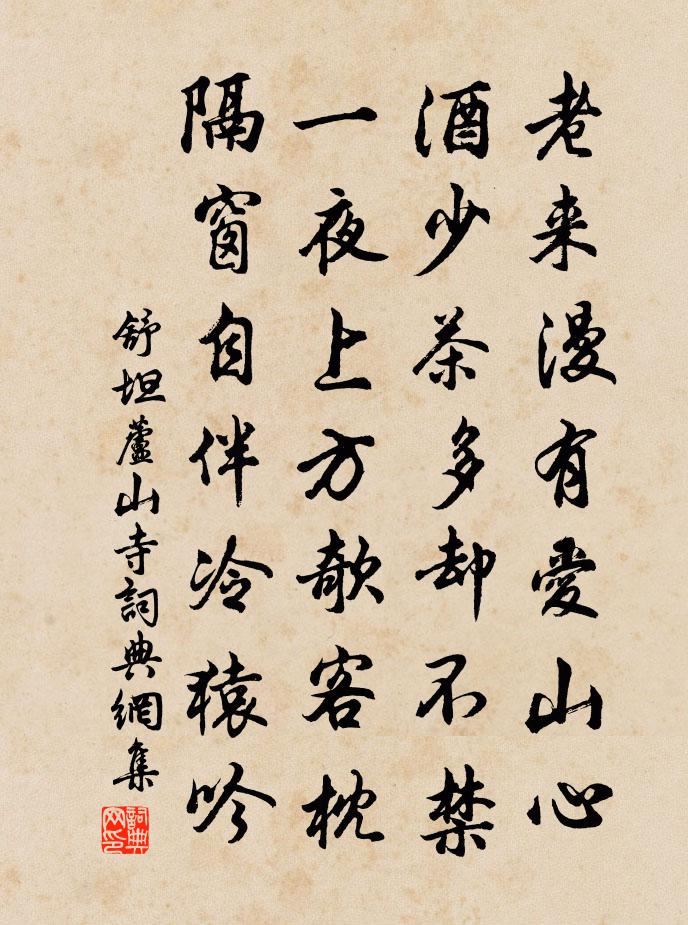 老来漫有愛山心
酒少茶多却不禁
一夜上方欹客枕
隔窗自伴冷猿吟
舒坦蘆山寺詞典網集
詞典网印